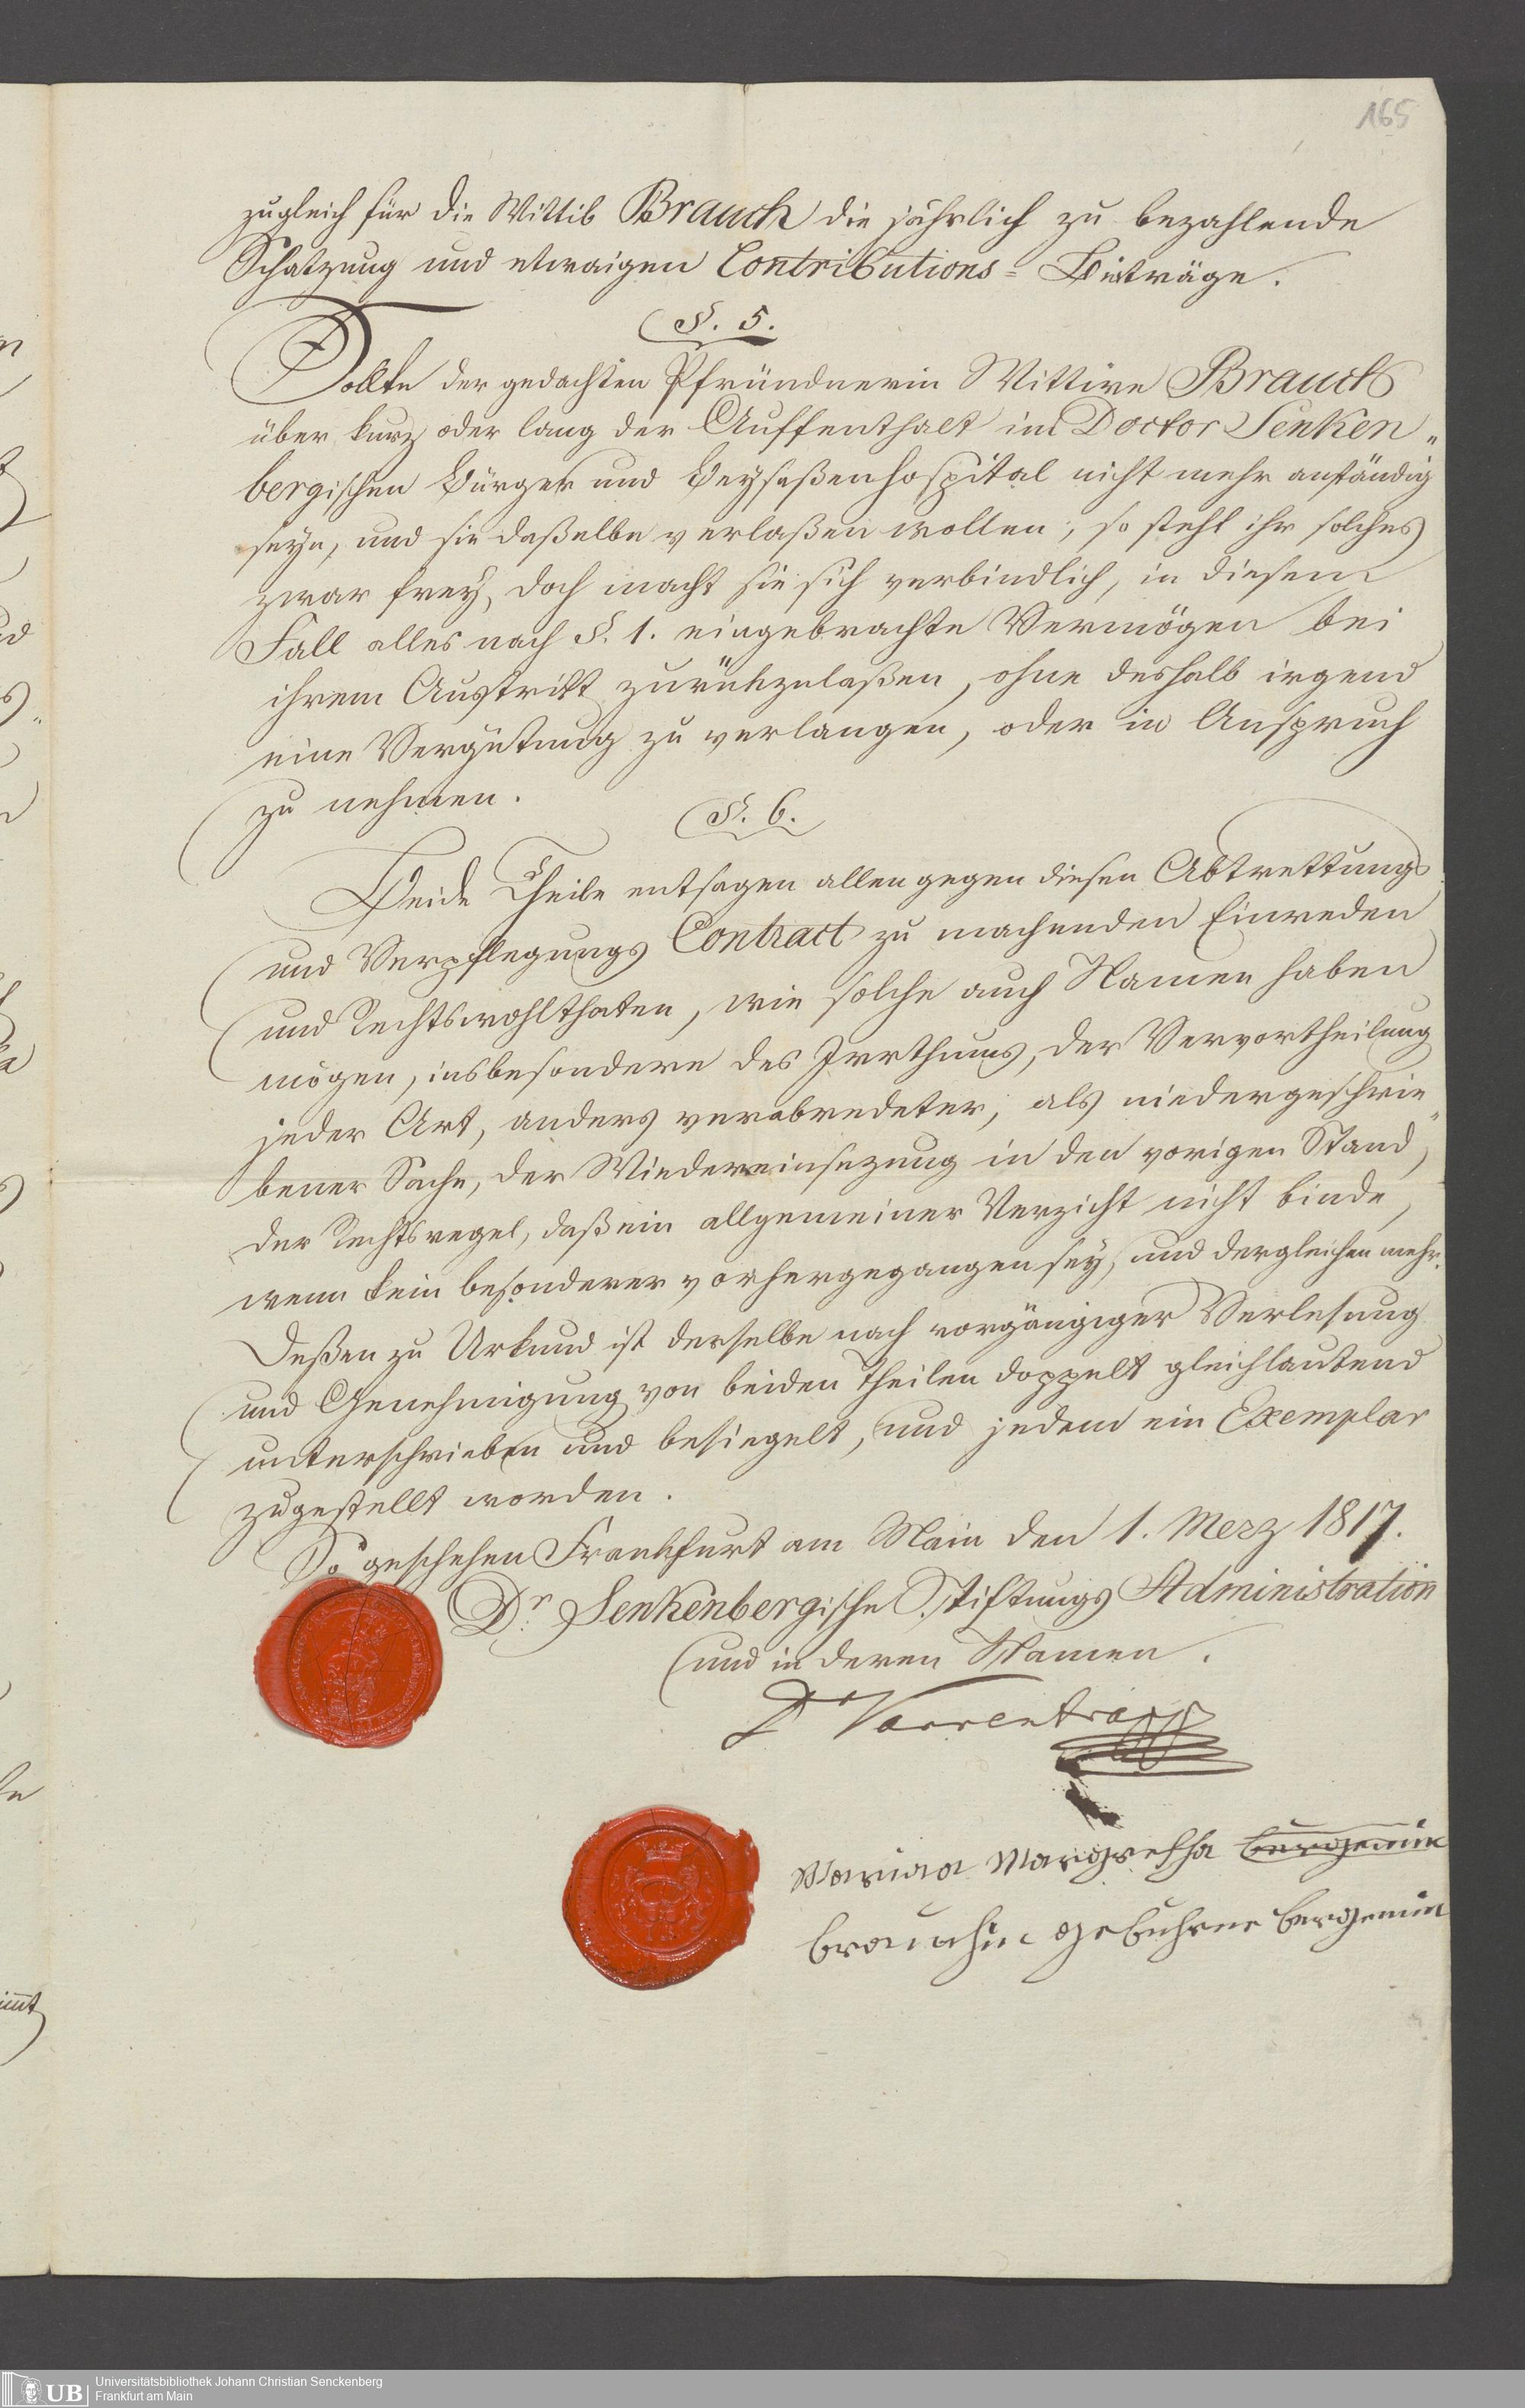 165
zugleich für die Wittib Brauch die jährlich zu bezahlende
Schatzung und etwaigen Contributions= Beiträge.
§. 5.
Sollte der gedachten Pfründnerin Wittwe Brauch
über kurz oder lang der Auffenthalt im Doctor Senken„
bergischen Bürger und Beysaßenhospital nicht mehr anständig
seyn, und sie daßelbe verlaßen wollen; so steht ihr solches
zwar frey, doch macht sie sich verbindlich, in diesem
Fall alles nach §. 1. eingebrachte Vermögen bei
ihrem Austritt zurükzulaßen, ohne deshalb irgend
eine Vergütung zu verlangen, oder in Anspruch
zu nehmen.
§. 6.
Beide Theile entsagen allen gegen diesen Abtrettungs
und Verpflegungs Contract zu machenden Einreden
und Rechtswohlthaten, wie solche auch Namen haben
mögen, insbesondere des Irrthums, der Vervortheilung
jeder Art, anders verabredeter, als niedergeschrie„
bener Sache, der Wiedereinsezung in den vorigen Stand,
der Rechtsregel, daß ein allgemeiner Verzicht nicht binde,
wenn kein besonderer vorhergegangen sey, und dergleichen mehr.
Deßen zu Urkund ist derselbe nach vorgängiger Verlesung
und Genehmigung von beiden Theilen doppelt gleichlautend
unterschrieben und besiegelt, und jedem ein Exemplar
zugestellt worden.
So geschehen Frankfurt am Main den 1. Merz 1817.
Dr. Senkenbergische Stiftungs Administration
und in deren Namen.
Dr Varrentrapp
Mariaa Margretha bergemin
brauchin gebuhrne bergemin
UB
Universitätsbibliothek Johann Christian Senckenberg
Frankfurt am Main